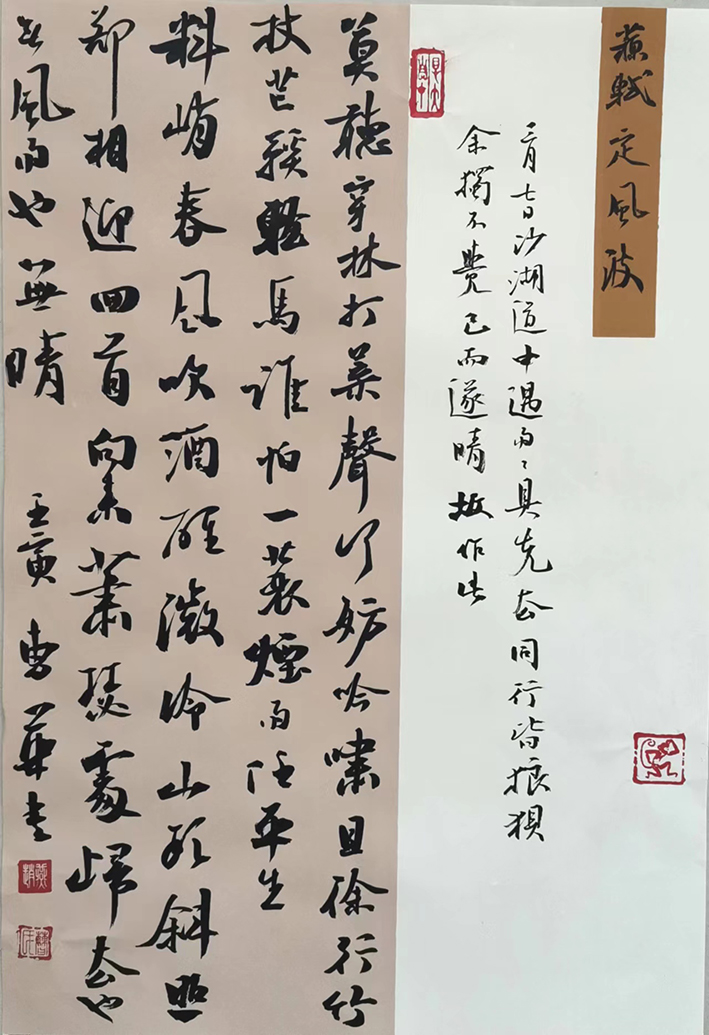 蘇軾定風波
三月七日沙湖道中遇雨〻具先去同行皆狼狽
余獨不覺已而遂晴故作此
莫聽穿林打葉聲何妨吟嘯且徐行竹
杖芒鞵輕馬誰怕一蓑煙雨任平生
料峭春風吹酒醒微冷山頭斜照
却相迎回首向來蕭瑟處歸去也
無風雨也無晴 壬寅 華書